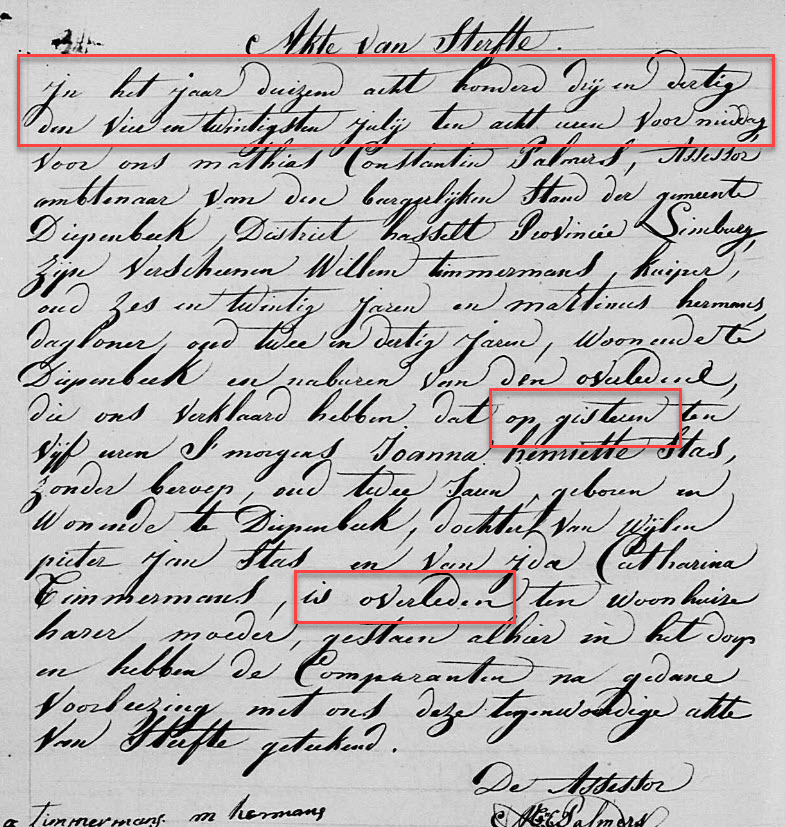 Akte van Sterfte.
In het jaar duizend acht honderd drij en dertig
den vier en twintigsten julij ten acht uren voor middag
voor ons mathias Constantin Palmers, Assessor
ambtenaar van den burgerlijken Stand der gemeente
Diepenbeek, District hasselt Provincie Limburg,
zijn verscheenen Willem timmermans, kuiper,
oud zes en twintig jaren en martinus hermans,
dagloner, oud twee en dertig jaren, woonende te
Diepenbeek en naburen van den overledene,
die ons verklaard hebben dat op gisteren ten
vijf uren S'morgens Joanna henriette Stas,
zonder beroep, oud twee Jaren, geboren en
wonende te Diepenbeek, dochter van wijlen
pieter jan Stas en van jda Catharina
Timmermans, is overleden ten woonhuize
harer moeder, gestaen alhier in het dorp
en hebben de Comparanten na gedane
voorleezing met ons deze tegenwoordige akte
van Sterfte geteekend.
De Assessor
timmermans m hermans
MCPalmers